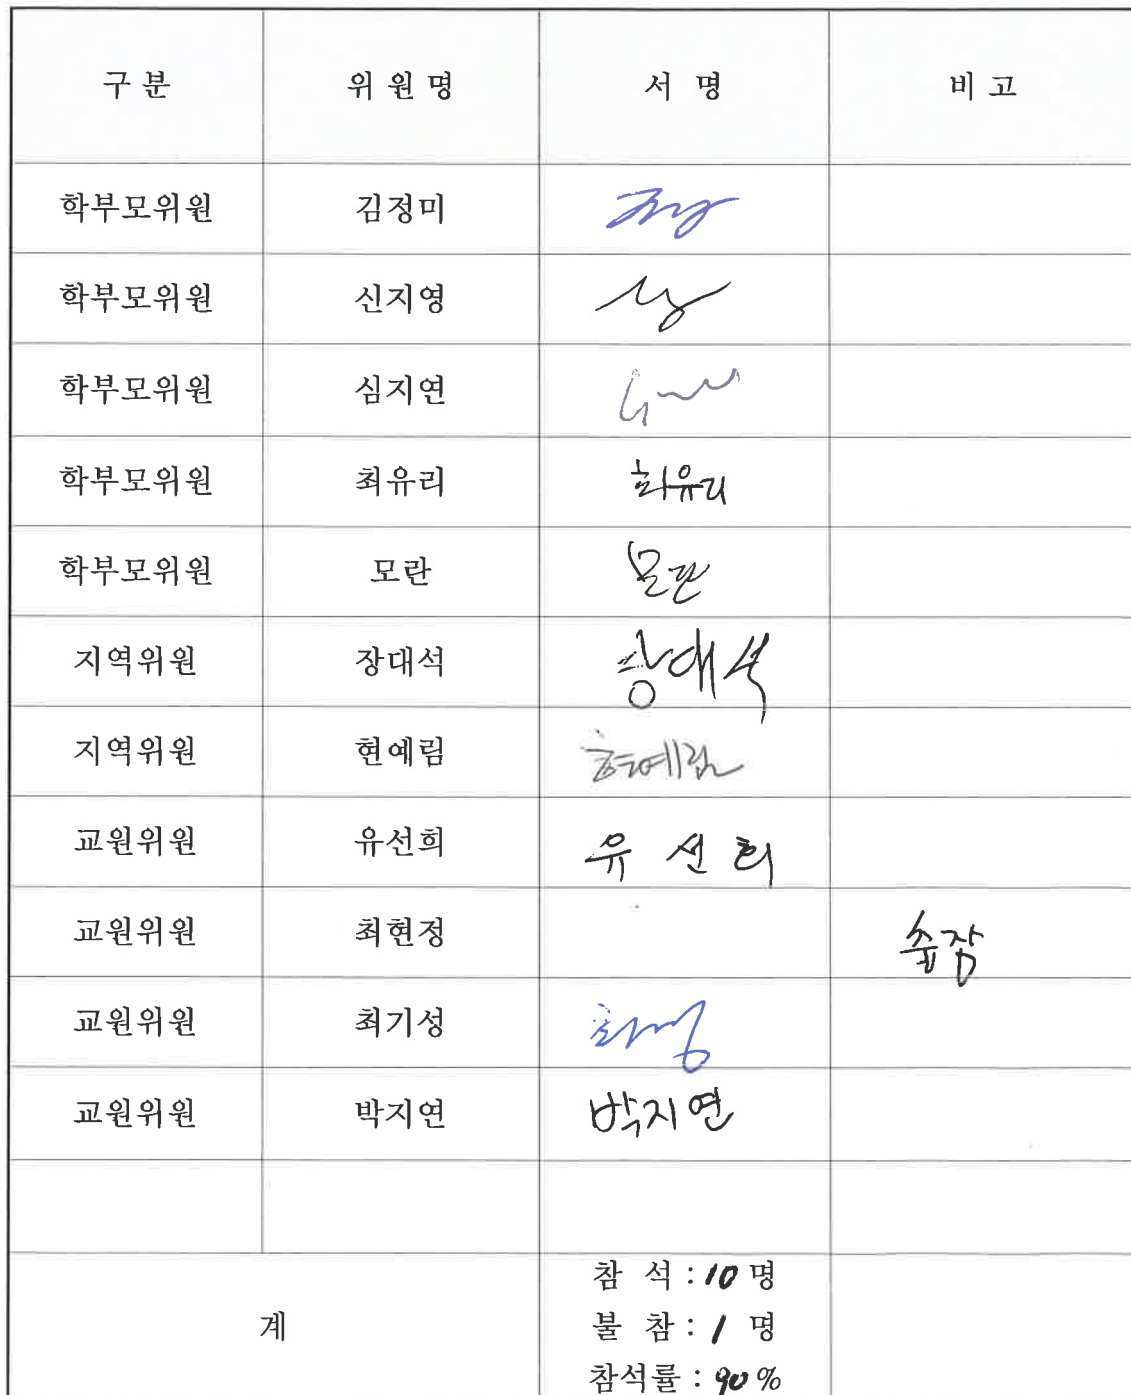 구 분 위 원 명 서 명 비 고
학부모위원 김정미
학부모위원 신지영
학부모위원 심지연
학부모위원 최유리 최유리
학부모위원 모란 모란
지역위원 장대석 장대석
지역위원 현예림 현예림
교원위원 유선희 유선희
교원위원 최현정 출장
교원위원 최기성
교원위원 박지연 박지연
참 석 : 10 명
계 불 참 : 1 명
참석률 : 90 %